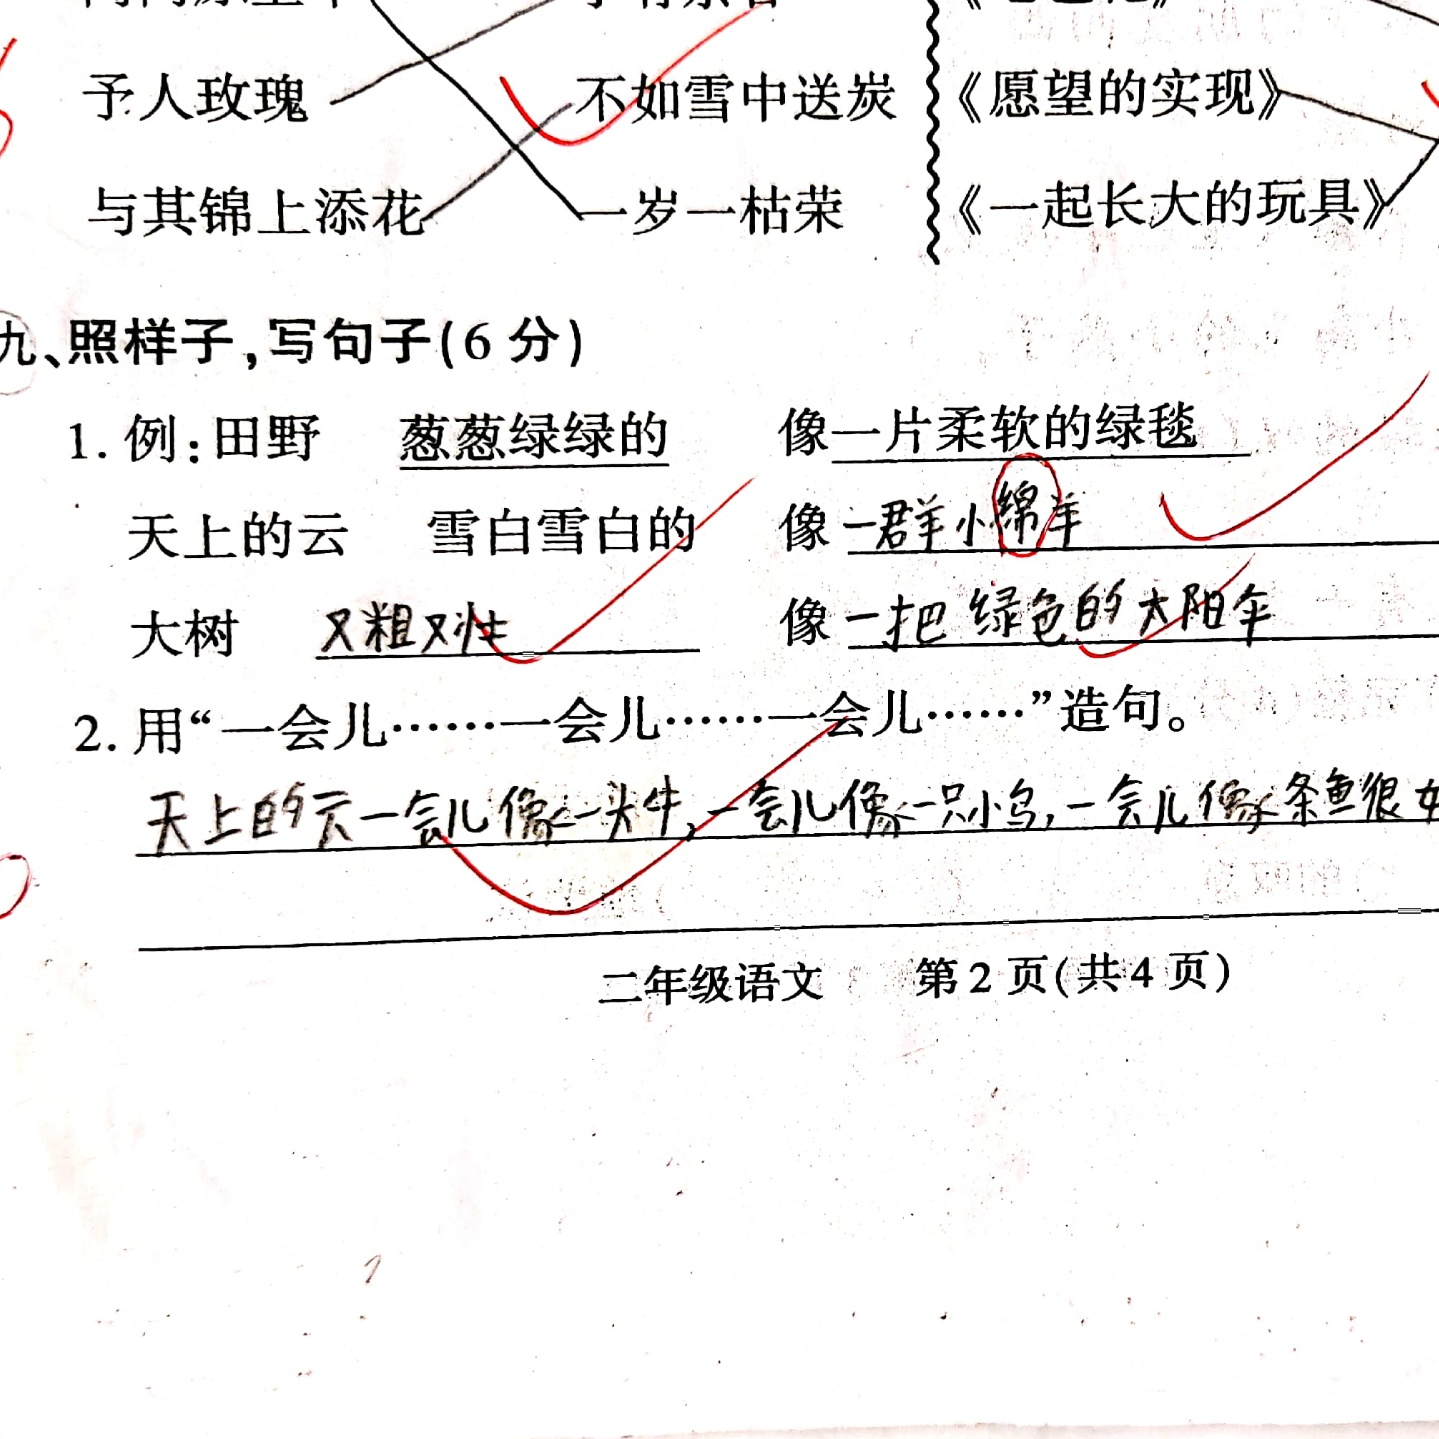 予人玫瑰 不如雪中送炭 《愿望的实现》
与其锦上添花 一岁一枯荣 《一起长大的玩具》
九、照样子,写句子(6分)
1. 例:田野 葱葱绿绿的 像一片柔软的绿毯
天上的云 雪白雪白的 像一群小绵羊
大树 又粗又壮 像一把绿色的太阳伞
2. 用“一会儿……一会儿……一会儿……”造句。
天上的云一会儿像一头牛,一会儿像一只小鸟,一会儿像条鱼很
二年级语文 第2页(共4页)